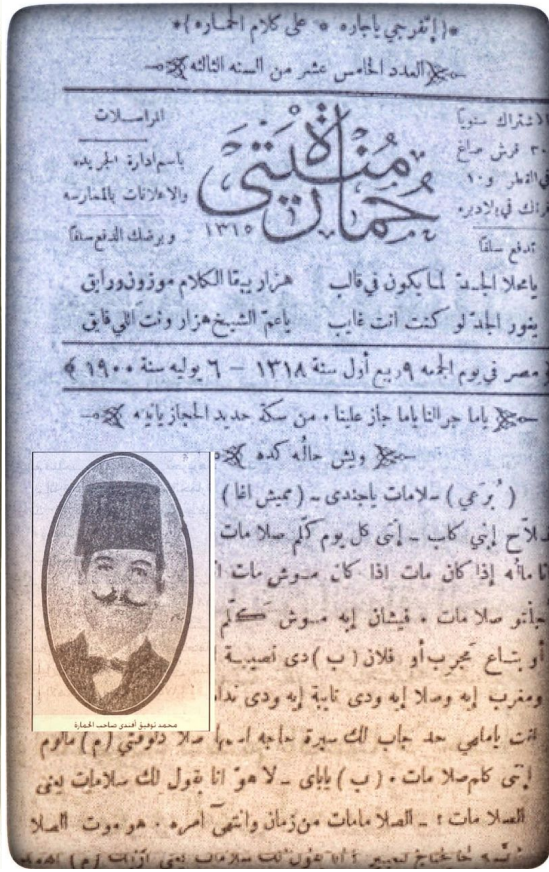 *{ إتفرجي ياجاره * على كلام الحماره }*
العدد الخامس عشر من السنه الثالثه
الاشتراك سنويا
٣٠ قرش صاغ
في القطر و ١٠
فرنك في بلاد بره
تدفع سلفا
حمارة منيتي
١٣١٥
المراسلات
باسم ادارة الجريده
والاعلانات بالمارسه
وبرضك الدفع سلفا
يامحلا الجد لما يكون في قالب هزار يبقا الكلام موزون ورايق
يغور الجد لو كنت انت غايب ياعم الشيخ هزار ونت اللي فايق
مصر في يوم الجمعه ٩ ربيع أول سنة ١٣١٨ – ٦ يوليه سنة ١٩٠٠
ياما جرالنا ياما جاز علينا ٠ من سكة حديد الحجاز يابيه
ويش حاله كده
( بُرَعي ) سلامات ياجندى – ( ميش اغا )
فلاح إبني كلب – إنتى كل يوم كلم صلا مات
انا ماله إذا كان مات اذا كان مـوش مات
جانو صلا مات ٠ فيشان إيه مـوش كلم
أو بتاع مجرب أو فلان ( ب ) دى نصيبة
ومغرب إيه وصلا إيه ودى نايبة إيه ودى
انت يامامي حد جاب لك سيرة حاجه صلا دلوقتي ( م ) مالوم
إنتى كلم صلا مات ٠ ( ب ) ياباى – لا هو انا بقول لك سلامات يعنى
الصلا مات ؛ – الصلا مامات من زمان وانتهى أمره ٠ هو موت الصلا
محمد توفيق أفندى صاحب الحمارة